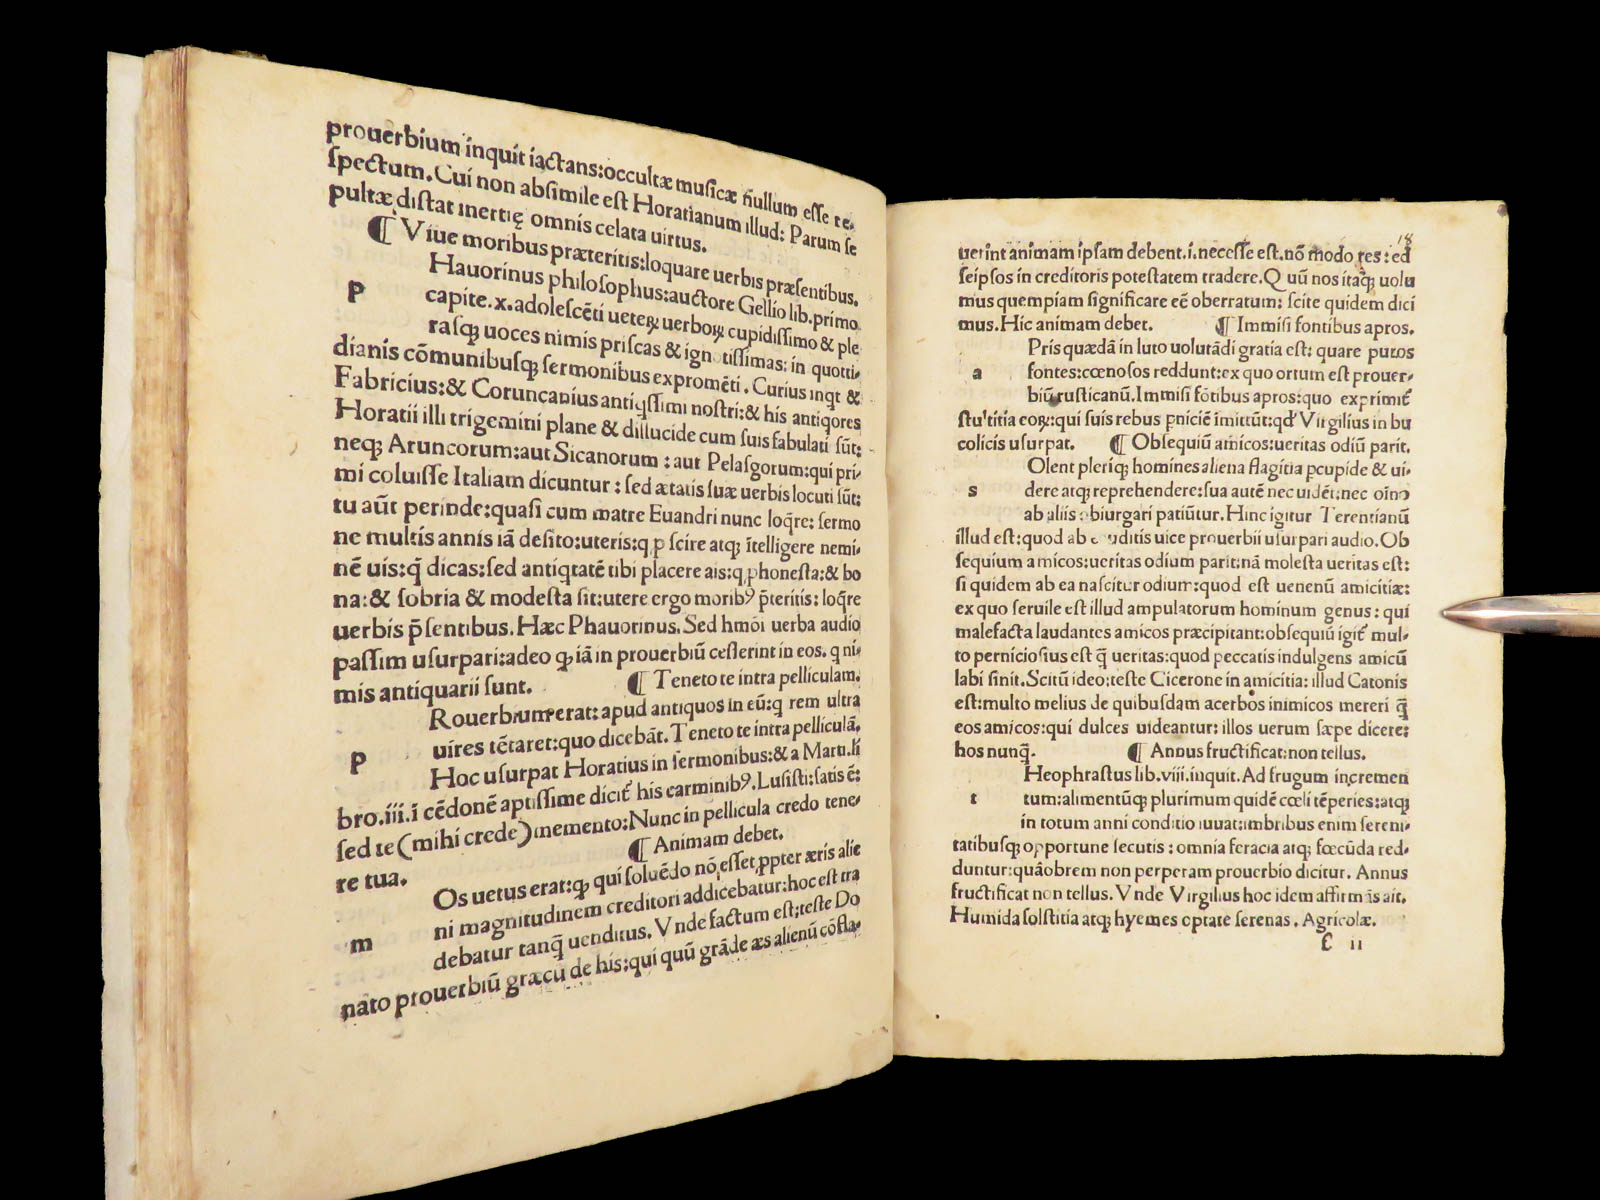 prouerbium inquit iactans:occultæ musicæ nullum esse re-
spectum.Cui non absimile est Horatianum illud: Parum se
pultæ distat inertię omnis celata uirtus.
¶ Viue moribus præteritis:loquare uerbis præsentibus.
Hauorinus philosophus:auctore Gellio lib.primo
p capite.x.adolescēti ueteꝝ uerboꝝ cupidissimo & ple
rasꝗ uoces nimis priscas & ignotissimas: in quotti-
dianis cōmunibusꝗ sermonibus expromēti. Curius inqt &
Fabricius:& Coruncanius antiqssimi nostri:& his antiqores
Horatii illi trigemini plane & dillucide cum suis fabulati sūt:
neqꝫ Aruncorum:aut Sicanorum : aut Pelasgorum:qui pri-
mi coluisse Italiam dicuntur : sed ætatis suæ uerbis locuti sūt:
tu aūt perinde:quasi cum matre Euandri nunc loqre: sermo
ne multis annis iā desito:uteris:q p scire atqꝫ ītelligere nemi-
nē uis:q̄ dicas:sed antiqtatē tibi placere ais:q phonesta:& bo
na:& sobria & modesta sit:utere ergo moribꝰ p̄teritis: loqre
uerbis p̄sentibus. Hæc Phauorinus. Sed hmōi uerba audio
passim usurpari:adeo ꝙ iā in prouerbiū cesserint in eos. q ni-
mis antiquarii sunt. ¶ Teneto te intra pelliculam.
Rouerbium erat: apud antiquos in eū:q rem ultra
p uires tētaret:quo dicebāt. Teneto te intra pelliculā.
Hoc usurpat Horatius in sermonibus:& a Marti.li
bro.iii.ī cēdonē aptissime dicit his carminibꝰ. Lusisti:satis ē:
sed te (mihi crede) memento:Nunc in pellicula credo tene-
re tua. ¶ Animam debet.
Os uetus erat:ꝙ qui soluēdo nō esset ꝓpter æris alie
m ni magnitudinem creditori addicebatur:hoc est tra
debatur tanq̄ uenditus. Vnde factum est:teste Do
nato prouerbiū græcū de his:qui quū grāde æs alienū cōfla-
18
uerint animam ipsam debent.i.necesse est.nō modo res: ed
seipsos in creditoris potestatem tradere.Quū nos itaqꝫ uolu
mus quempiam significare eē oberratum: scite quidem dici
mus.Hic animam debet. ¶ Immisi fontibus apros.
Pris quædā in luto uolutādi gratia est: quare puros
a fontes:cœnosos reddunt:ex quo ortum est prouer-
biū rusticanū.Immisi fōtibus apros:quo exprimit
stultitia eoꝝ:qui suis rebus ꝑniciē īmittūt:qd Virgilius in bu
colicis usurpat. ¶ Obsequiū amicos:ueritas odiū parit.
Olent pleriqꝫ homines aliena flagitia ꝑcupide & ui-
s dere atqꝫ reprehendere:sua autē nec uidēt:nec oīno
ab aliis obiurgari patiūtur. Hinc igitur Terentianū
illud est:quod ab eruditis uice prouerbii usurpari audio.Ob
sequium amicos:ueritas odium parit:nā molesta ueritas est:
si quidem ab ea nascitur odium:quod est uenenū amicitiæ:
ex quo seruile est illud ampulatorum hominum genus : qui
malefacta laudantes amicos præcipitant:obsequiū igit mul-
to perniciosius est q̄ ueritas:quod peccatis indulgens amicū
labi sinit.Scitū ideo:teste Cicerone in amicitia: illud Catonis
est:multo melius de quibusdam acerbos inimicos mereri q̄
eos amicos:qui dulces uideantur: illos uerum sæpe dicere:
hos nunq̄. ¶ Annus fructificat:non tellus.
Heophrastus lib.viii.inquit.Ad frugum incremen
t tum:alimentūqꝫ plurimum quidē cœli tēperies:atqꝫ
in totum anni conditio iuuat:imbribus enim sereni-
tatibusqꝫ opportune secutis : omnia feracia atqꝫ fœcūda red-
duntur:quāobrem non perperam prouerbio dicitur. Annus
fructificat non tellus. Vnde Virgilius hoc idem affirmās ait.
Humida solstitia atqꝫ hyemes optate serenas . Agricolæ.
c ii